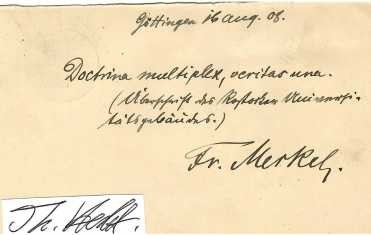 Göttingen 16 Aug. 08.
Doctrina multiplex, veritas una.
(Überschrift des Rostocker Universi-
tätsgebäudes.)
Fr. Merkel.
Th.